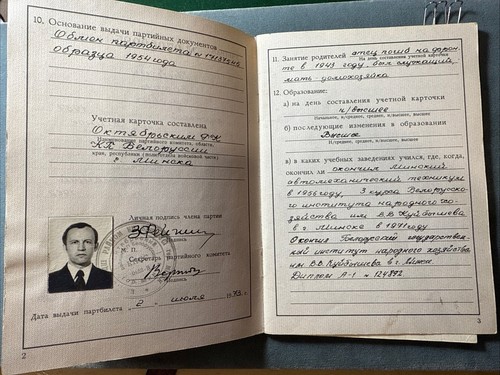 10. Основание выдачи партийных документов
Обмен партбилета
образца 1954 года
Учетная карточка составлена
Октябрьским
Наименование партийного комитета, области,
КП Белоруссии
края, республики (политотдела войсковой части)
г Минска
Личная подпись члена партии
М. П.
Подпись
Секретарь партийного комитета
Подпись
Дата выдачи партбилета „ 2 “ июля 1973 г.
2
11. Занятие родителей отец погиб на фрон-
На день составления учетной карточки
те в 1943 году был служащий,
мать-домохозяйка
12. Образование:
а) на день составления учетной карточки
н/высшее
Начальное, н/среднее, среднее, н/высшее, высшее
б) последующие изменения в образовании
Высшее
Н/среднее, среднее, н/высшее, высшее
в) в каких учебных заведениях учился, где, когда,
окончил ли окончил Минский
автомеханический техникум
в 1956 году, 3 курса Белорусско-
го института народного хо-
зяйства им. В.В. Куйбышева
в г Минске в 1971 году
Окончил Белорусский государствен-
ный институт народного хозяйства
им. В.В. Куйбышева в г.
Диплом А-1 № 124892
3